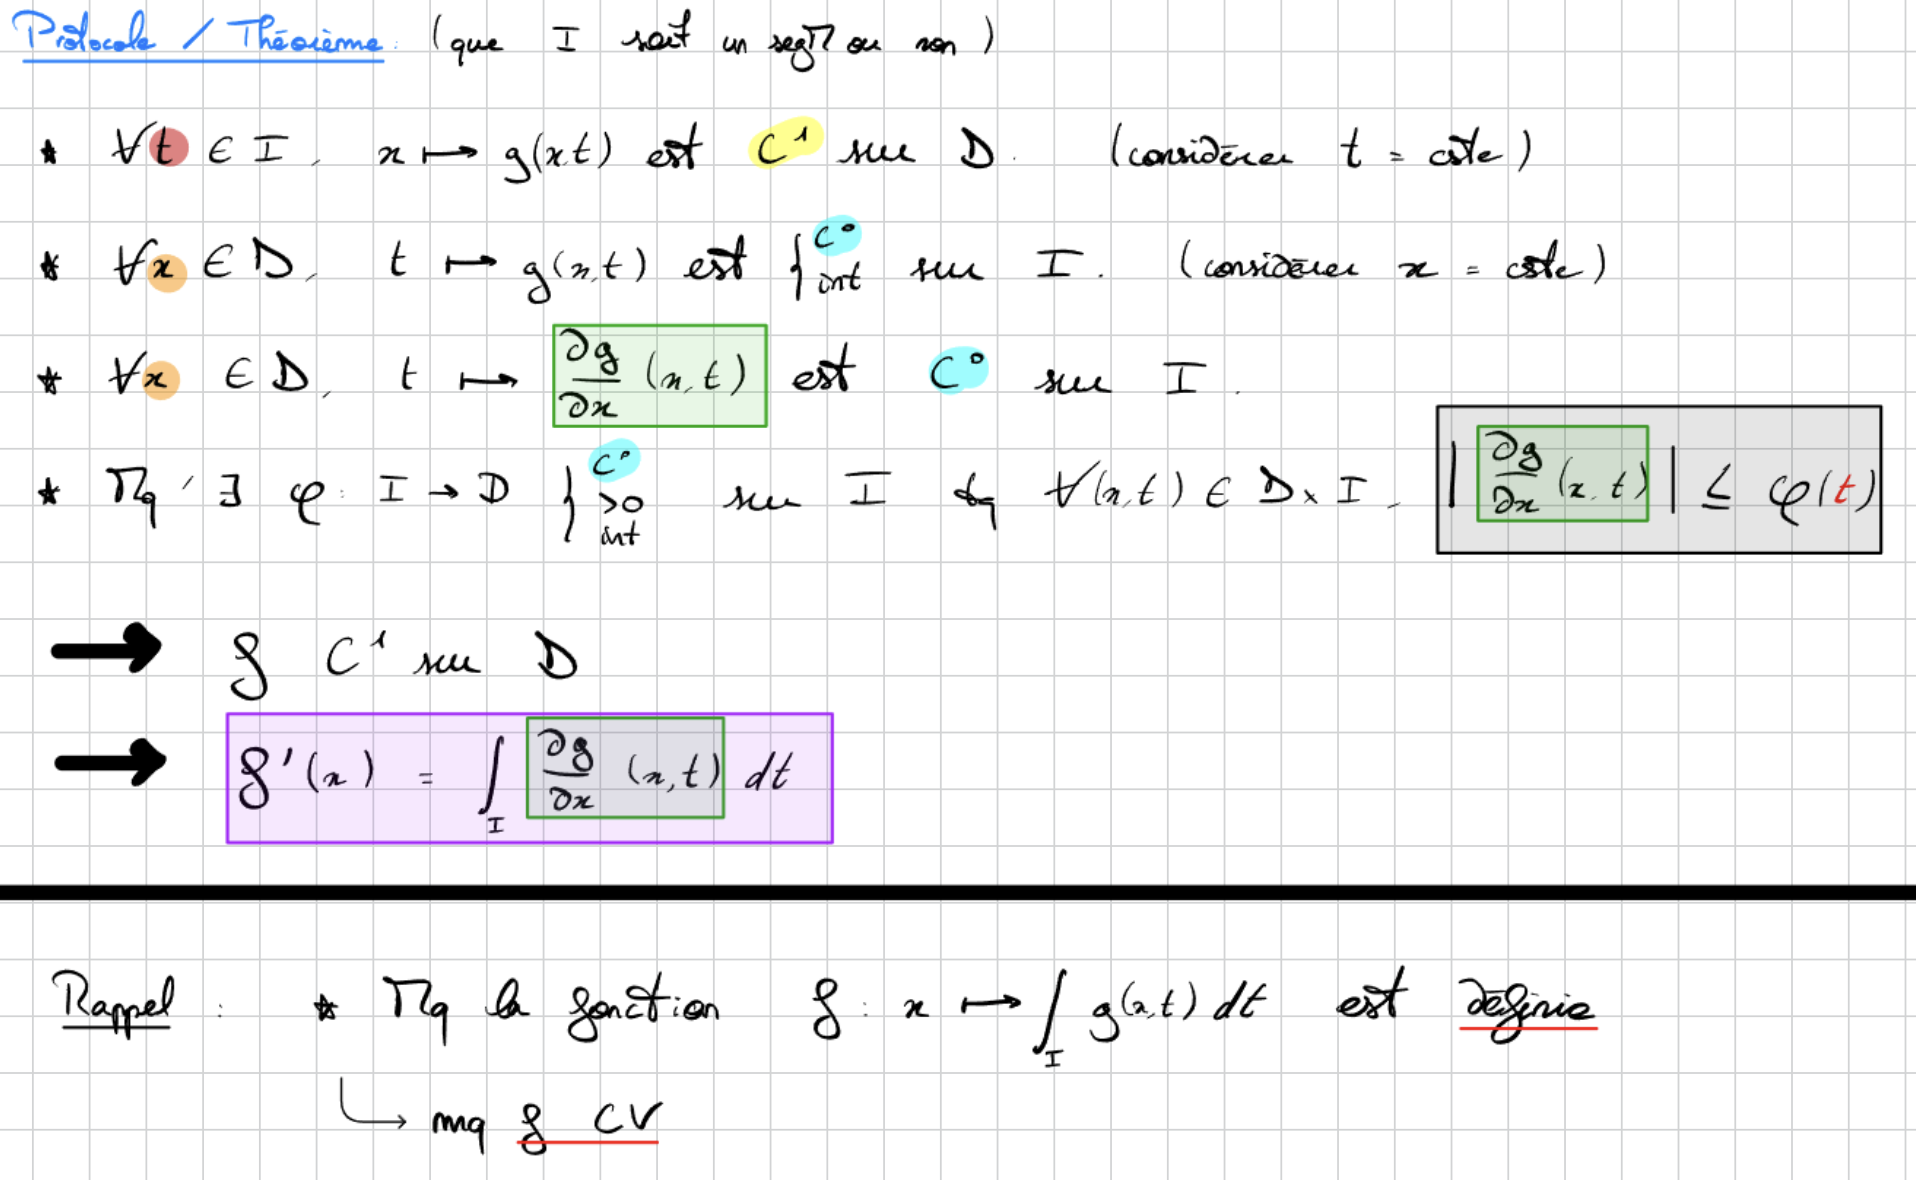 Protocole / Théorème : (que I soit un segᴹ ou non)
* ∀t ∈ I, x ↦ g(x,t) est C¹ sur D. (considérer t = cste)
* ∀x ∈ D, t ↦ g(x,t) est { C⁰ int sur I. (considérer x = cste)
* ∀x ∈ D, t ↦ ∂g/∂x (x,t) est C⁰ sur I.
* Mq ∃ φ : I → D } C⁰ >0 int sur I tq ∀(x,t) ∈ D × I, |∂g/∂x (x,t)| ≤ φ(t)
→ f C¹ sur D
→ f'(x) = ∫_I ∂g/∂x (x,t) dt
Rappel : * Mq la fonction f : x ↦ ∫_I g(x,t) dt est définie
↳ mq f CV